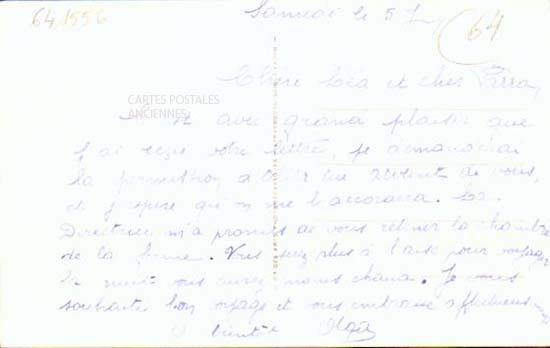 64 1556
Samedi le 5 J
64
Chère Léa et chers Parra,
CARTES POSTALES
ANCIENNES
C'est avec grand plaisir que
j'ai reçue votre lettre, je demanderai
la permission d'aller au devant de vous,
et j'espère qu'on me l'accordera. La
Directrice m'a promis de vous retenir la chambre
de la femme. Vous serez plus à l'aise pour voyager
la nuit vous aurez moins chaud. Je vous
souhaite bon voyage et vous embrasse affectueusement
A bientôt Olga